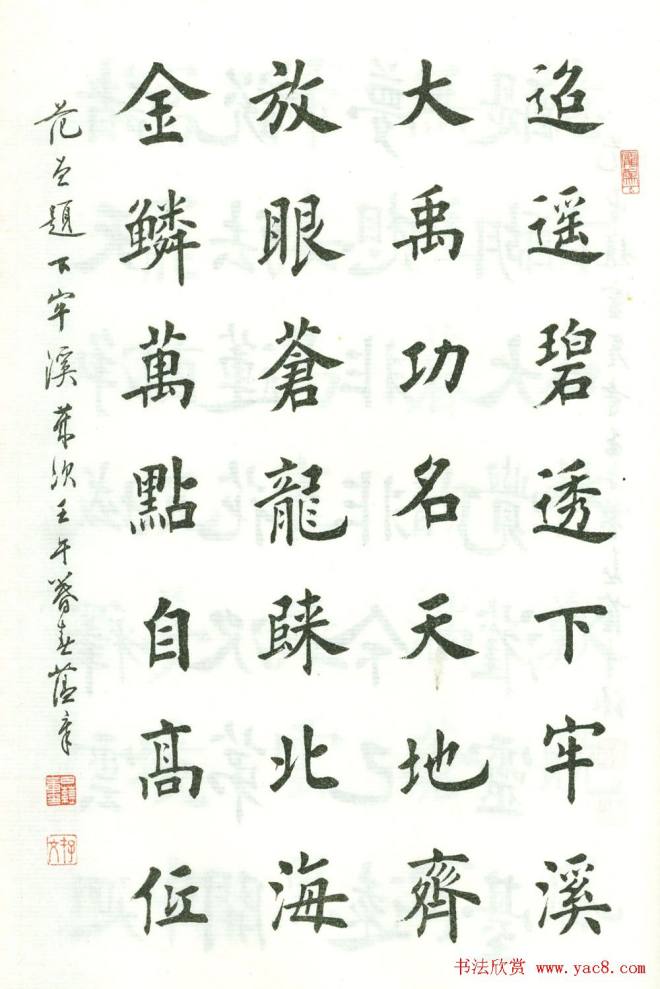 迢遥碧透下牢溪
大禹功名天地齊
放眼蒼龍睐北海
金鱗萬點自高低
范題下牢溪歲次壬午暮春
书法欣赏 www.yac8.com